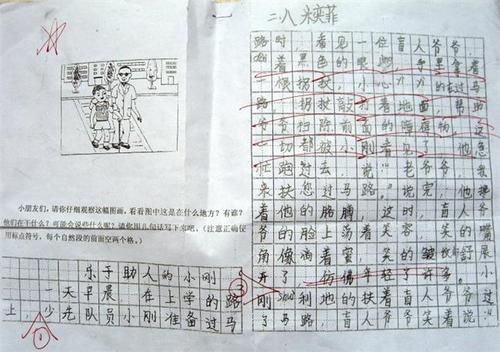 二.八 米奕菲
小朋友们，请你仔细观察这幅图画，看看图中这是在什么地方？有谁？
他们在干什么？可能会说些什么呢？请你图几句话写下来吧。（注意正确使
用标点符号，每个自然段的前面空两个格。）
乐于助人的小刚
一天早晨，在上学的路
上，少先队员小刚准备过马
路时，看见一位盲人爷爷，
着黑色的眼 手里拿着
拐杖，小心 在过马
路，拐杖敲 着地面，帮助
爷爷扫除前面的障碍物，这
一切都被小刚看见了，他急
忙跑过去，说：“老爷爷，我
来扶您过马路。”说完，他挽
着他的胳膊，这时，盲人爷
爷的脸上荡着笑容的嘴
角像淌着蜜，笑的皱纹舒展
开了，仿佛年轻了许多。小
刚 利地的扶着盲人爷爷过
了马路，盲人爷爷笑着说：